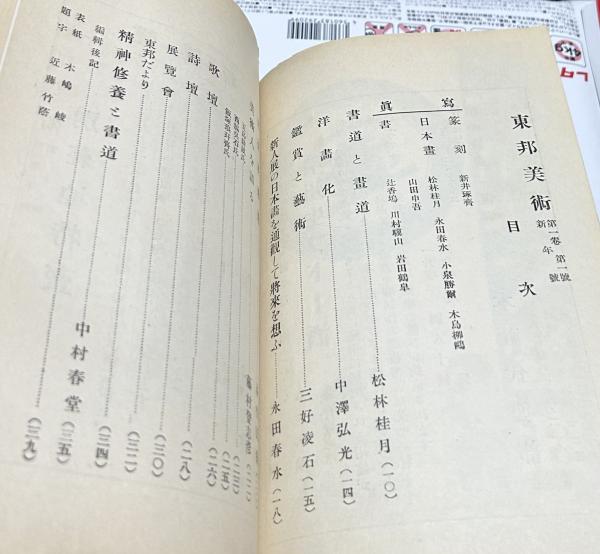 東邦美術 第一卷 第一號
新年號
目次
寫眞
篆刻 新井琢齋
日本畫 松林桂月 永田春水 小泉勝爾 木島柳鷗
山田申吾
書 辻香塢 川村驥山 岩田鶴皐
書道と畫道 松林桂月(一〇)
洋畫化 中澤弘光(一四)
鑑賞と藝術 三好凌石(一五)
新人展の日本畫を通觀して將來を想ふ 永田春水(一八)
歌壇 (二六)
詩壇 (二八)
展覽會 (三〇)
東邦だより (三二)
精神修養と書道 中村春堂(三五)
編輯後記 (三九)
表紙 木嶋峻
題字 近藤竹蔭
4kg